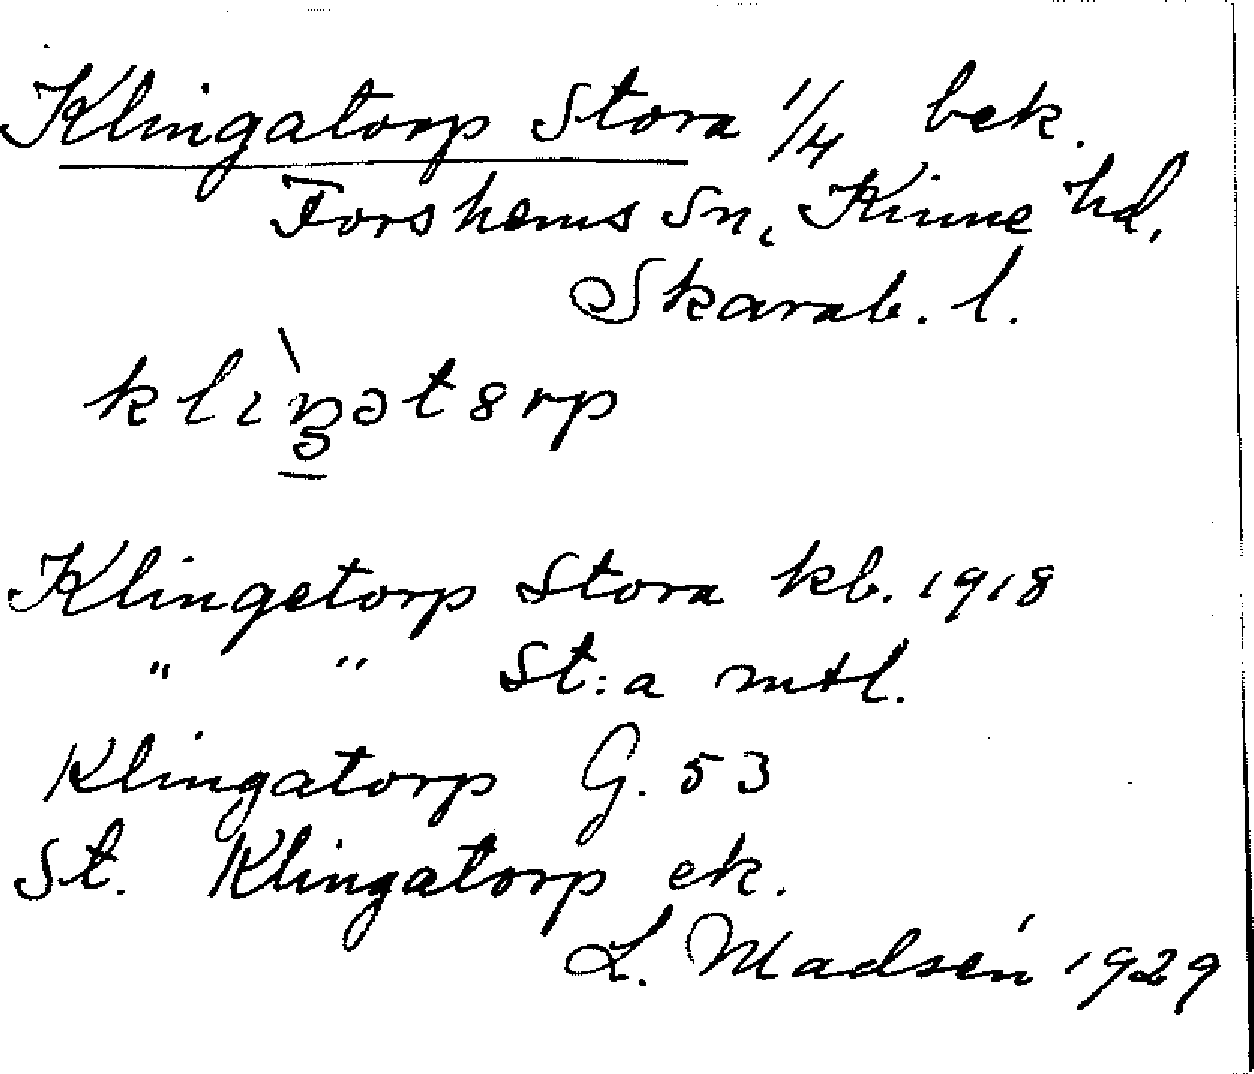 Klingatorp Stora 1/4 bek.
Forshems sn, Kinne hd,
Skarab. l.
Klingetorp Stora kb. 1918
" " St:a mtl.
Klingatorp G. 53
St. Klingatorp ek.
L. Madsén 1929